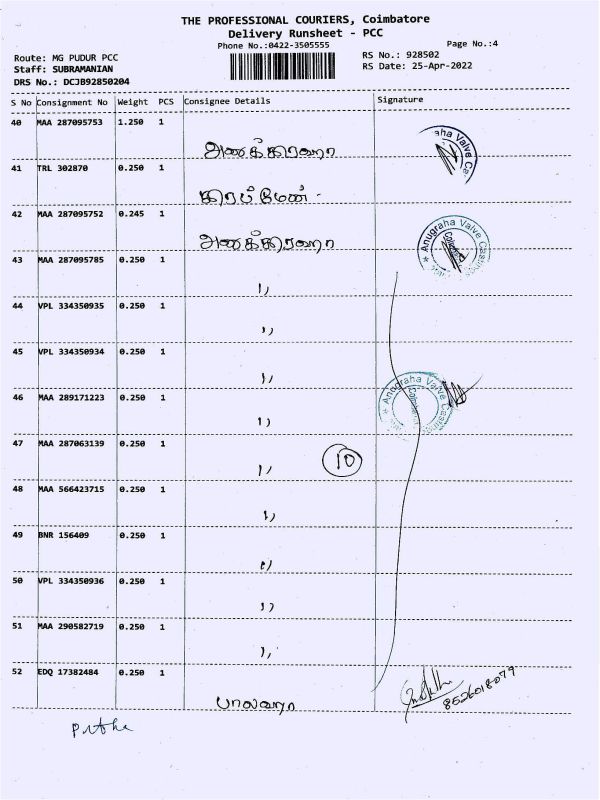 THE PROFESSIONAL COURIERS, Coimbatore
Delivery Runsheet - PCC
Phone No.:0422-3505555
Page No.:4
Route: MG PUDUR PCC
RS No.: 928502
Staff: SUBRAMANIAN
RS Date: 25-Apr-2022
DRS No.: DCJB92850204
S No Consignment No Weight PCS Consignee Details Signature
40 MAA 287095753 1.250 1
41 TRL 302870 0.250 1
42 MAA 287095752 0.245 1
Anugraha Valve
43 MAA 287095785 0.250 1
1,
44 VPL 334350935 0.250 1
1)
45 VPL 334350934 0.250 1
1)
Anugraha Valve
46 MAA 289171223 0.250 1
1)
47 MAA 287063139 0.250 1
1, 10
48 MAA 566423715 0.250 1
1)
49 BNR 156409 0.250 1
50 VPL 334350936 0.250 1
1)
51 MAA 290582719 0.250 1
1,
52 EDQ 17382484 0.250 1
8526018079